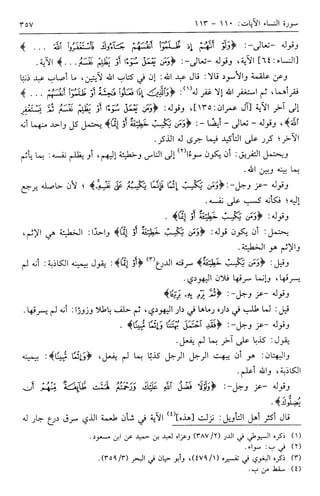 سورة النساء الآيات: ١١٠ - ١١٣ ٣٥٧
وقوله -تعالى-: ﴿وَلَوْ أَنَّهُمْ إِذ ظَّلَمُوٓا۟ أَنفُسَهُمْ جَآءُوكَ فَٱسْتَغْفَرُوا۟ ٱللَّهَ ... ﴾
[النساء: ٦٤] الآية، وقوله -تعالى-: ﴿وَمَن يَعْمَلْ سُوٓءًا أَوْ يَظْلِمْ نَفْسَهُۥ ... ﴾ الآية.
وعن علقمة والأسود قالا: قال عبد الله: إن في كتاب الله لآيتين، ما أصاب عبد ذنبًا
فقرأهما، ثم استغفر الله إلا غفر له(١) ﴿وَٱلَّذِينَ إِذَا فَعَلُوا۟ فَٰحِشَةً أَوْ ظَلَمُوٓا۟ أَنفُسَهُمْ ... ﴾
إلى آخر الآية [آل عمران: ١٣٥]، وقوله: ﴿وَمَن يَعْمَلْ سُوٓءًا أَوْ يَظْلِمْ نَفْسَهُۥ ثُمَّ يَسْتَغْفِرِ
ٱللَّهَ﴾، وقوله -تعالى- أيضًا-: ﴿وَمَن يَكْسِبْ خَطِيٓـَٔةً أَوْ إِثْمًا﴾ يحتمل كل واحد منهما أنه
الآخر؛ كرر على التأكيد فيما جرى له الذكر.
ويحتمل التفريق: أن يكون سوءًا(٢) إلى الناس وخطيئة إليهم، أو يظلم نفسه: بما يأثم
بما بينه وبين الله.
وقوله -عز وجل-: ﴿وَمَن يَكْسِبْ إِثْمًا فَإِنَّمَا يَكْسِبُهُۥ عَلَىٰ نَفْسِهِۦ﴾؛ لأن حاصله يرجع
إليه؛ فكأنه كسب على نفسه.
وقوله: ﴿وَمَن يَكْسِبْ خَطِيٓـَٔةً أَوْ إِثْمًا﴾ .
يحتمل: أن يكون قوله: ﴿وَمَن يَكْسِبْ خَطِيٓـَٔةً أَوْ إِثْمًا﴾ واحدًا: الخطيئة هي الإثم،
والإثم هو الخطيئة.
وقيل: ﴿وَمَن يَكْسِبْ خَطِيٓـَٔةً﴾ سرقته الدرع(٣) ﴿أَوْ إِثْمًا﴾: يقول بيمينه الكاذبة: أنه لم
يسرقها، وإنما سرقها فلان اليهودي.
وقوله -عز وجل-: ﴿ثُمَّ يَرْمِ بِهِۦ بَرِيٓـًٔا﴾
قيل: لما طلب في داره رماها في دار اليهودي، ثم حلف باطلا وزورًا: أنه لم يسرقها.
وقوله -عز وجل-: ﴿فَقَدِ ٱحْتَمَلَ بُهْتَٰنًا وَإِثْمًا مُّبِينًا﴾ .
يقول: كذبا على آخر بما لم يفعل.
والبهتان: هو أن يبهت الرجل الرجل كذبًا بما لم يفعل، ﴿وَإِثْمًا مُّبِينًا﴾: بيمينه
الكاذبة، والله أعلم.
وقوله -عز وجل-: ﴿وَلَوْلَا فَضْلُ ٱللَّهِ عَلَيْكَ وَرَحْمَتُهُۥ لَهَمَّت طَّآئِفَةٌ مِّنْهُمْ أَن
يُضِلُّوكَ﴾.
قال أكثر أهل التأويل: نزلت [هذه](٤) الآية في شأن طعمة الذي سرق درع جار له
(١) ذكره السيوطي في الدر (٣٨٧/٢) وعزاه لعبد بن حميد عن ابن مسعود.
(٢) في ب: سواء.
(٣) ذكره البغوي في تفسيره (٤٧٩/١)، وأبو حيان في البحر (٣٥٩/٣).
(٤) سقط من ب.